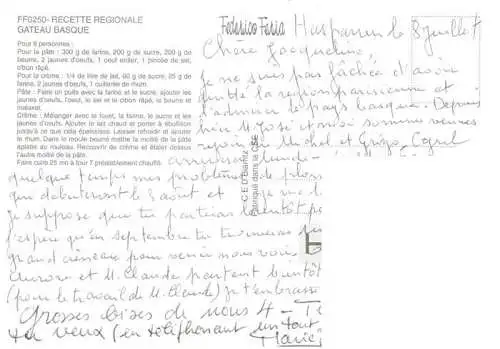 FF0250- RECETTE REGIONALE
GATEAU BASQUE
Pour 6 personnes :
Pour la pâte : 300 g de farine, 200 g de sucre, 200 g de
beurre, 2 jaunes d'oeufs, 1 oeuf entier, 1 pincée de sel,
citron râpé.
Pour la crème : 1/4 de litre de lait, 60 g de sucre, 25 g de
farine, 2 jaunes d'oeufs, 1 cuillerée de rhum.
Pâte : Faire un puits avec la farine, le sucre, ajouter les
jaunes d'oeufs, l'oeuf, le sel et le citron râpé, le beurre et
malaxer.
Crème : Mélanger avec le fouet, la farine, le sucre et les
jaunes d'oeufs. Ajouter le lait chaud et porter à ébullition
jusqu'à ce que cela épaississe. Laisser refroidir et ajouter
le rhum. Dans le moule beurré mettre la moitié de la pâte
aplatie au rouleau. Recouvrir de crème et étaler dessus
l'autre moitié de la pâte.
Faire cuire 25 mn à four 7 préalablement chauffé.
Federico Feria
C E D Biarritz
Fabriqué dans la CEE
Hasparren le 8 juillet
Chère Jacqueline,
je ne suis pas fâchée d'avoir
quitté la région parisienne et
d'admirer le pays basque. Depuis
hier et moi sommes venues
rejoindre Michel et
quelque temps mes problèmes de
qui débuteront le 3 août et
je suppose que tu partiras bientôt
j'espère qu'en septembre tu trouveras
grand créneau pour venir nous voir.
Aurore et M. Claude partent bientôt
(pour le travail de M. Claude) je t'embrasse
Grosses bises de nous 4 -
tu veux (en téléphonant un tout
Marie